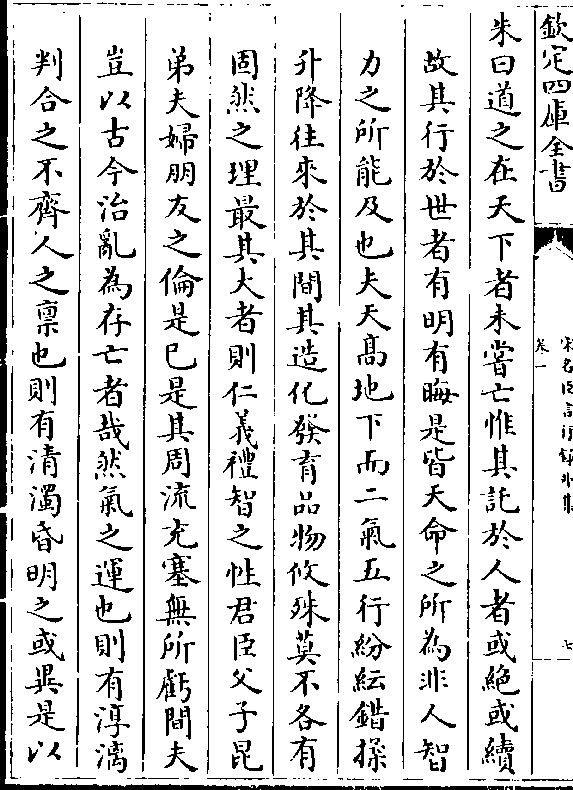 欽定四庫全書
宋名臣言行錄外集
卷一
七
朱曰道之在天下者未嘗亡惟其託於人者或絶或續
故其行於世者有明有晦是皆天命之所為非人智
力之所能及也夫天髙地下而二氣五行紛紜錯揉
升降往來於其間其造化發育品物攸殊莫不各有
固然之理最其大者則仁義禮智之性君臣父子昆
弟夫婦朋友之倫是已是其周流充塞無所虧間夫
豈以古今治亂為存亡者哉然氣之運也則有淳漓
判合之不齊人之稟也則有清濁昏明之或異是以